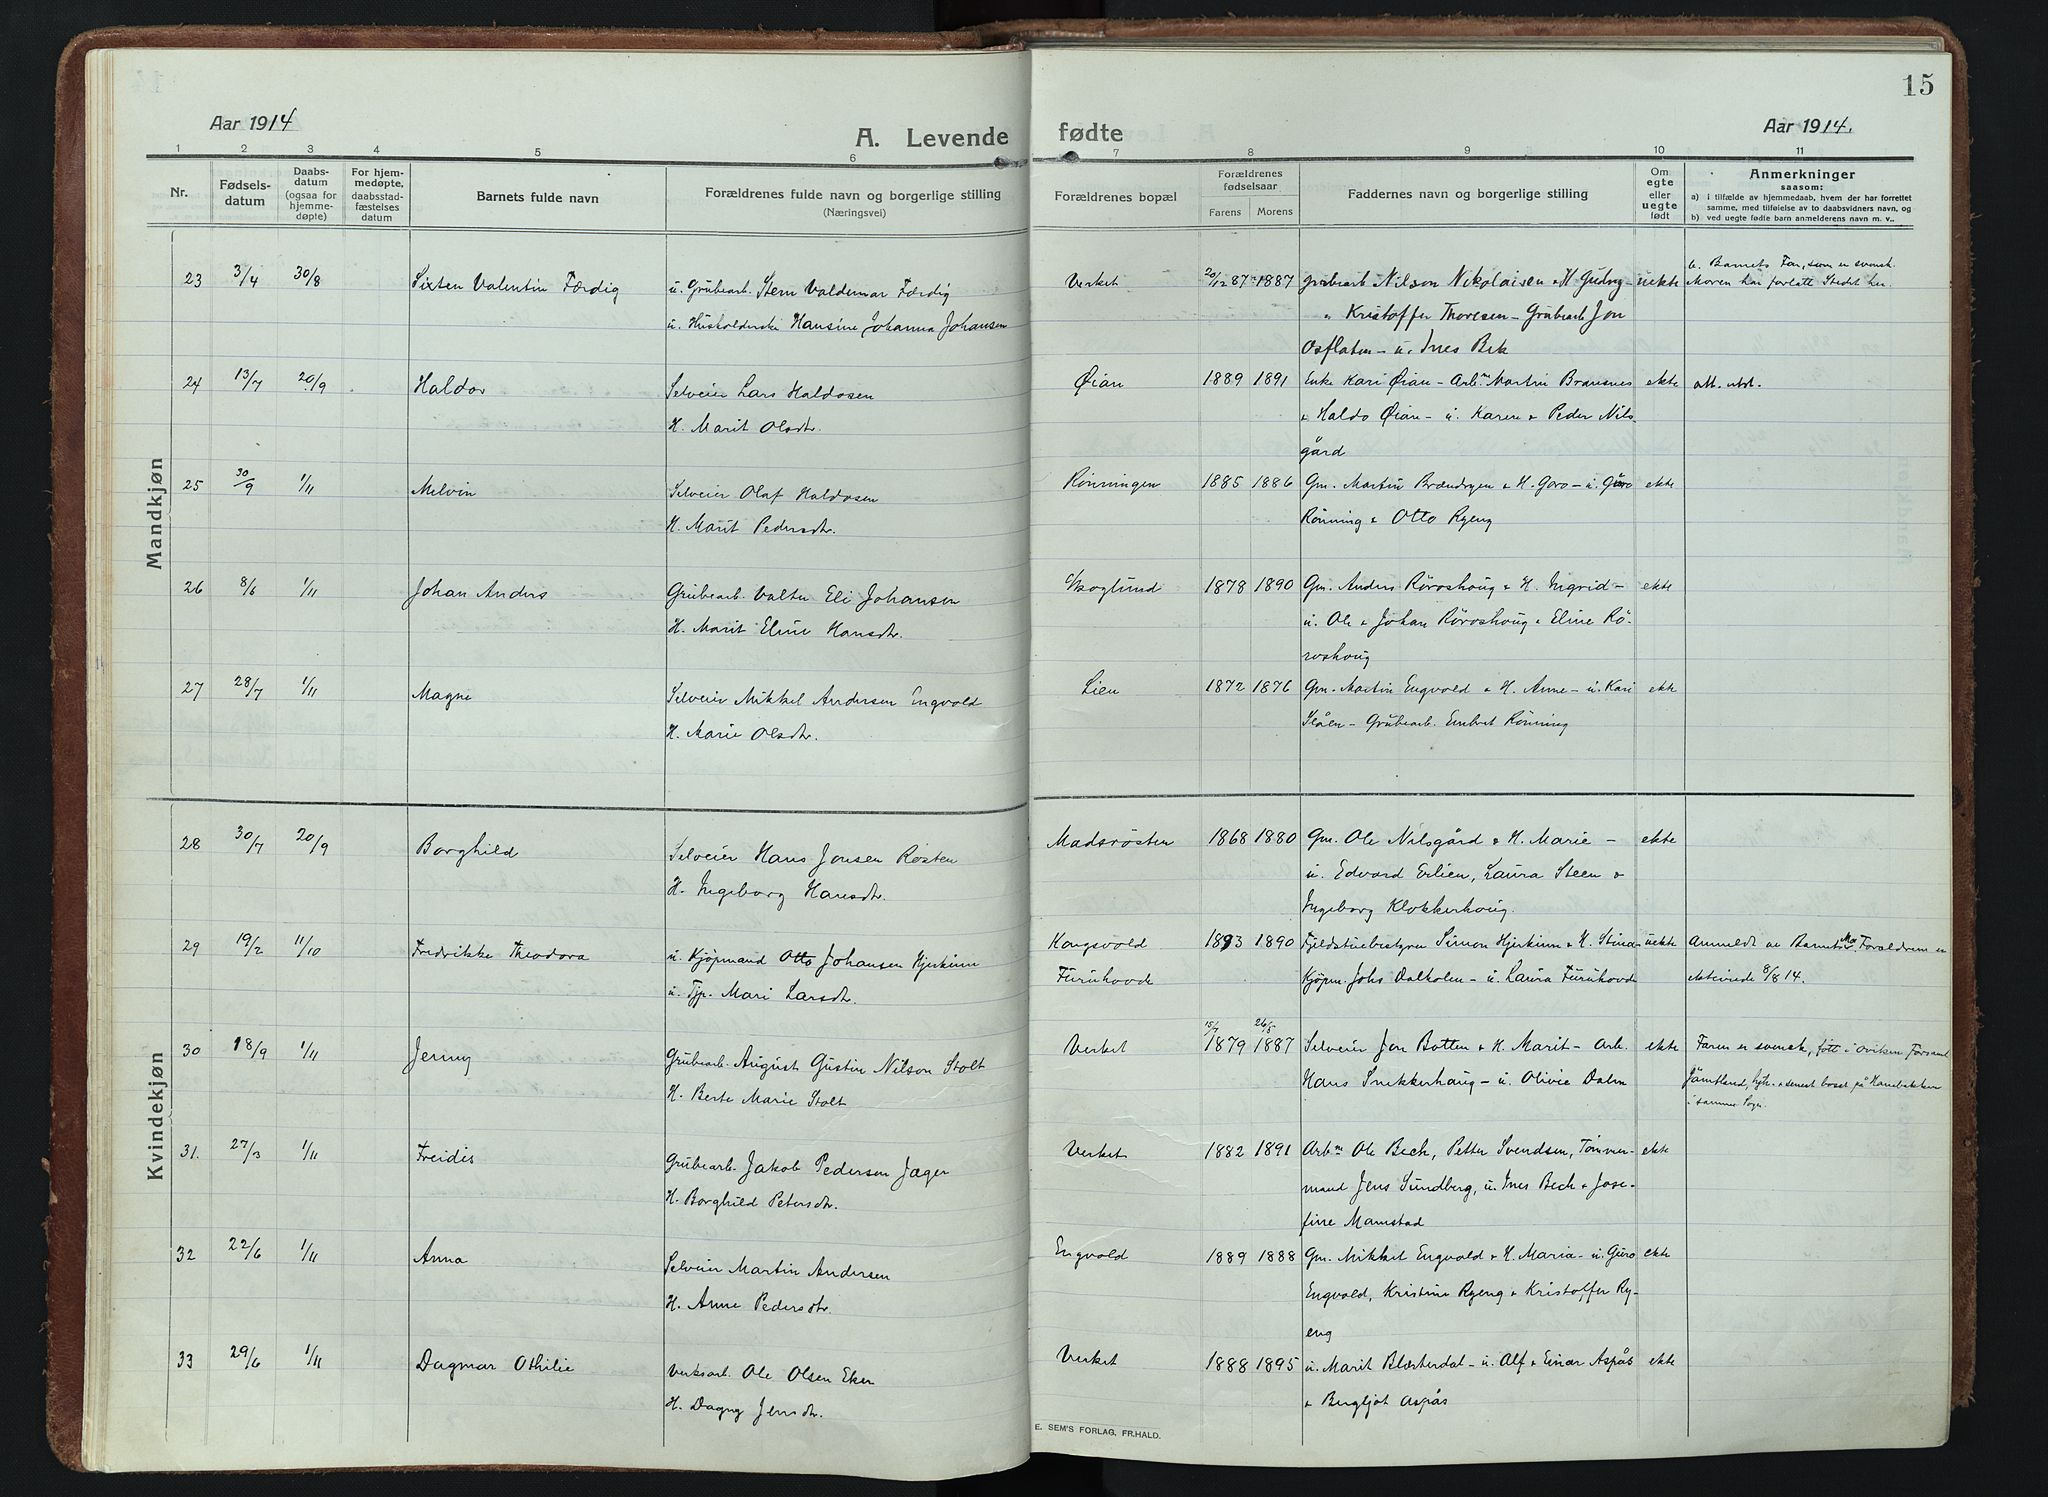 15
Aar 1914
A. Levende fødte
Aar 1914.
1 2 3 4 5 6 7 8 9 10 11
Nr.
Fødsels-
datum
Daabs-
datum
(ogsaa for
hjemme-
døpte)
For hjem-
medøpte,
daabsstad-
fæstelses
datum
Barnets fulde navn
Forældrenes fulde navn og borgerlige stilling
(Næringsvei)
Forældrenes bopæl
Forældrenes
fødselsaar
Farens Morens
Faddernes navn og borgerlige stilling
Om
egte
eller
uegte
født
Anmerkninger
saasom:
a) i tilfælde av hjemmedaab, hvem der har forrettet
samme, med tilføielse av to daabsvidners navn, og
b) ved uegte fødte barn anmelderens navn m. v..
Mandkjøn
23 3/4 30/8 Sixten Valentin Færdig u. Grubearb. Stern Valdemar Færdig Verket 20/12 87 1887 grubearb Nilson Nikolaisen & H Gudny uekte b. Barnets Far, som er svensk.
u. Husholderske Hansine Johanna Johansen " Kristoffer Thoresen – Grubearb Jon Moren har forlatt Stedet her.
Osflaten – u. Ines Bek
24 13/7 20/9 Haldor Selveier Lars Haldosen Øian 1889 1891 Enke Kari Øian – Arbm Martin Bransnes ekte att. utst.
H. Marit Olsdtr. & Haldo Øian – u. Karen & Peder Nils-
gård
25 30/9 1/11 Melvin Selveier Olaf Haldosen Rønningen 1885 1886 Gm. Martin Brændryen & H. Goro – u. Guro ekte
H. Marit Pedersdtr. Rønning & Otto Ryeng
26 8/6 1/11 Johan Anders Grubearb. Valter Eli Johansen Skoglund 1878 1890 Gm. Anders Røroshoug & H. Ingrid – ekte
H. Marit Eline Hansdtr. u. Ole & Johan Røroshoug & Eline Rø-
roshoug
27 28/7 1/11 Magne Selveier Mikkel Andersen Engvold Lien 1872 1876 Gm. Martin Engvold & H. Anne – u. Kari ekte
H. Marie Olsdtr. Slåen – Grubearb. Embret Rønning
Kvindekjøn
28 30/7 20/9 Borghild Selveier Hans Jonsen Røsten Madsrøsten 1868 1880 Gm. Ole Nilsgård & H. Marie – ekte
H. Ingeborg Hansdtr. u. Edvard Evlien, Laura Steen &
Ingeborg Klokkerhoug.
29 19/2 11/10 Fredrikke Theodora u. Kjøpmand Otto Johansen Hjerkinn Kongsvold 1893 1890 Fjeldstuebestyrer Simon Hjerkinn & H. Stina uekte Anmeldt av Barnets Mor. Forældrene er
u. Tjp. Mari Larsdtr. Furuhovde Kjøpm. Johs Dalkolen – u. Laura Furuhovde ektviede 8/8 14.
30 18/9 1/11 Jenny Grubearb. August Gustin Nilson Stolt Verket 15/7 1879 26/5 1887 Selveier Jon Botten & H. Marit – Arb. ekte Faren er svensk, født i Oviken Forsaml
H. Berte Marie Stolt Hans Snekkerhaug – u. Olivie Dalen Jämtland, & senest boset på
i samme Sogn.
31. 27/3 1/11 Freidis Grubearb. Jakob Pedersen Jæger Verket 1882 1891 Arbm Ole Bech, Petter Svendsen, Tømmer- ekte
H. Borghild Petersdtr. mand Jens Sundberg, u. Ines Bech & Jose-
fine Mamstad
32 22/6 1/11 Anna Selveier Martin Andersen Engvold 1889 1888 Gm. Mikkel Engvold & H. Maria – u. Guro ekte
H. Anne Pedersdtr. Engvold, Kristine Ryeng & Kristoffer Ry-
eng
33 29/6 1/11 Dagmar Othilie Verksarb. Ole Olsen Eker Verket 1888 1895 u. Marit Blæsterdal – u. Alf & Einar Aspås ekte
H. Dagny Jensdtr. & Bergljot Aspås
E. SEM'S FORLAG, FR.HALD.